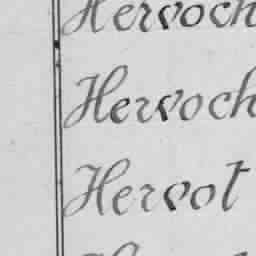 Hervoch
Hervoch
Hervot